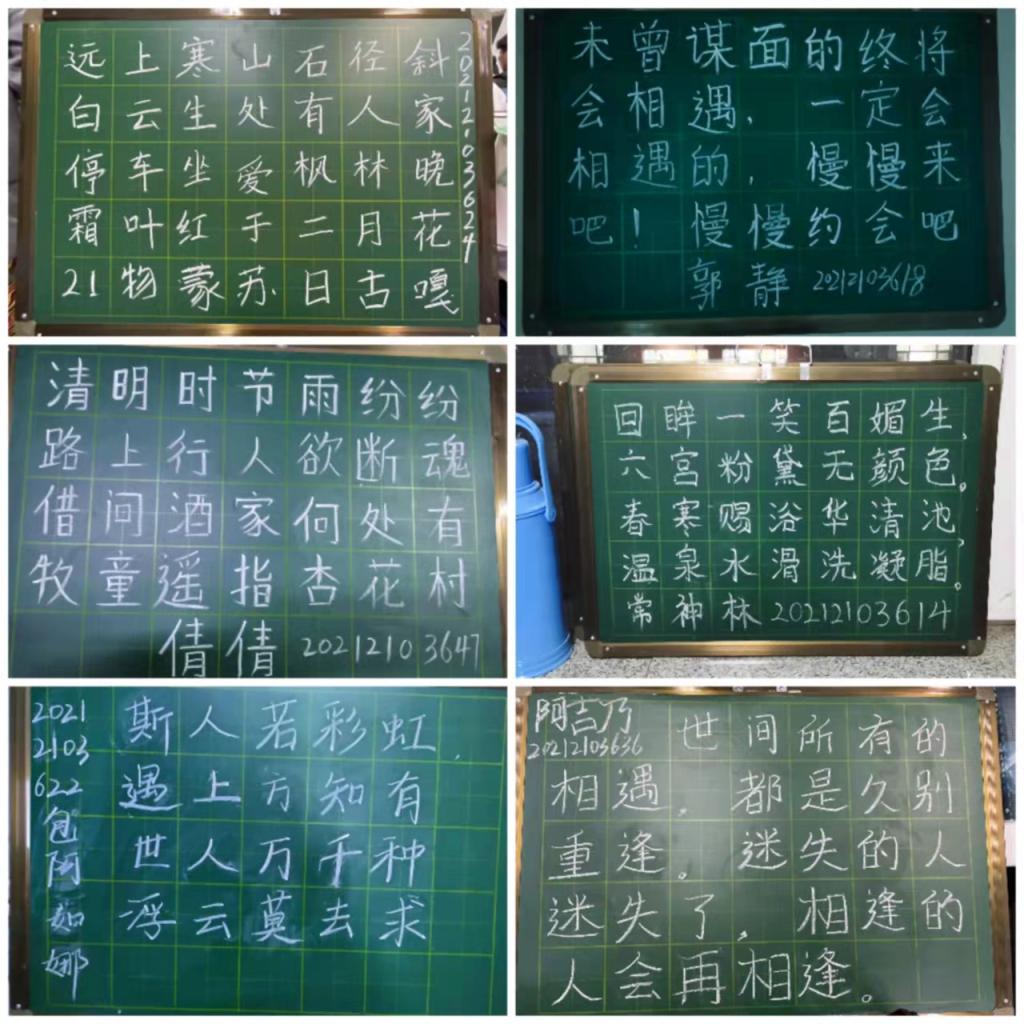 远上寒山石径斜
白云生处有人家
停车坐爱枫林晚
霜叶红于二月花
21物蒙苏日古嘎
20212103624
未曾谋面的终将
会相遇，一定会
相遇的，慢慢来
吧！慢慢约会吧
郭静 20212103618
清明时节雨纷纷
路上行人欲断魂
借问酒家何处有
牧童遥指杏花村
倩倩 20212103647
回眸一笑百媚生，
六宫粉黛无颜色。
春寒赐浴华清池，
温泉水滑洗凝脂。
常神林 20212103614
2021
2103
622
包阿如娜
斯人若彩虹，
遇上方知有
世人万千种
浮云莫去求
阿吉乃
20212103636
世间所有的
相遇。都是久别
重逢。迷失的人
迷失了，相逢的
人会再相逢。